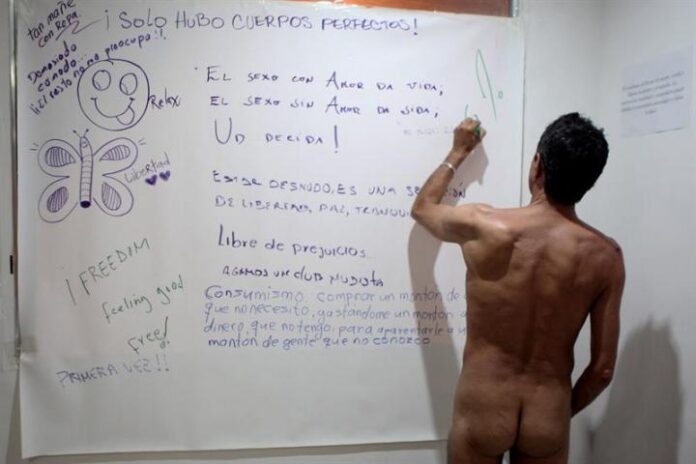 ¡SOLO HUBO CUERPOS PERFECTOS!
tan mañe
con Ropa
Demasiado
comodo...
¡¡El resto no me preocupa!!
Relax
Libertad
EL SEXO CON AMOR DA VIDA;
EL SEXO SIN AMOR DA SIDA;
UD DECIDA!
ESTAR DESNUDO, ES UNA
DE LIBERTAD, PAZ,
Libre de prejuicios...
AGAMOS UN CLUB NUDISTA
CONSUMISMO, comprar un montón de
que no necesito, gastandome un montón
dinero, que no tengo, para aparentarle a
montón de gente que no conozco
¡FREEDOM
feeling good
Free!
PRIMERA VEZ!!